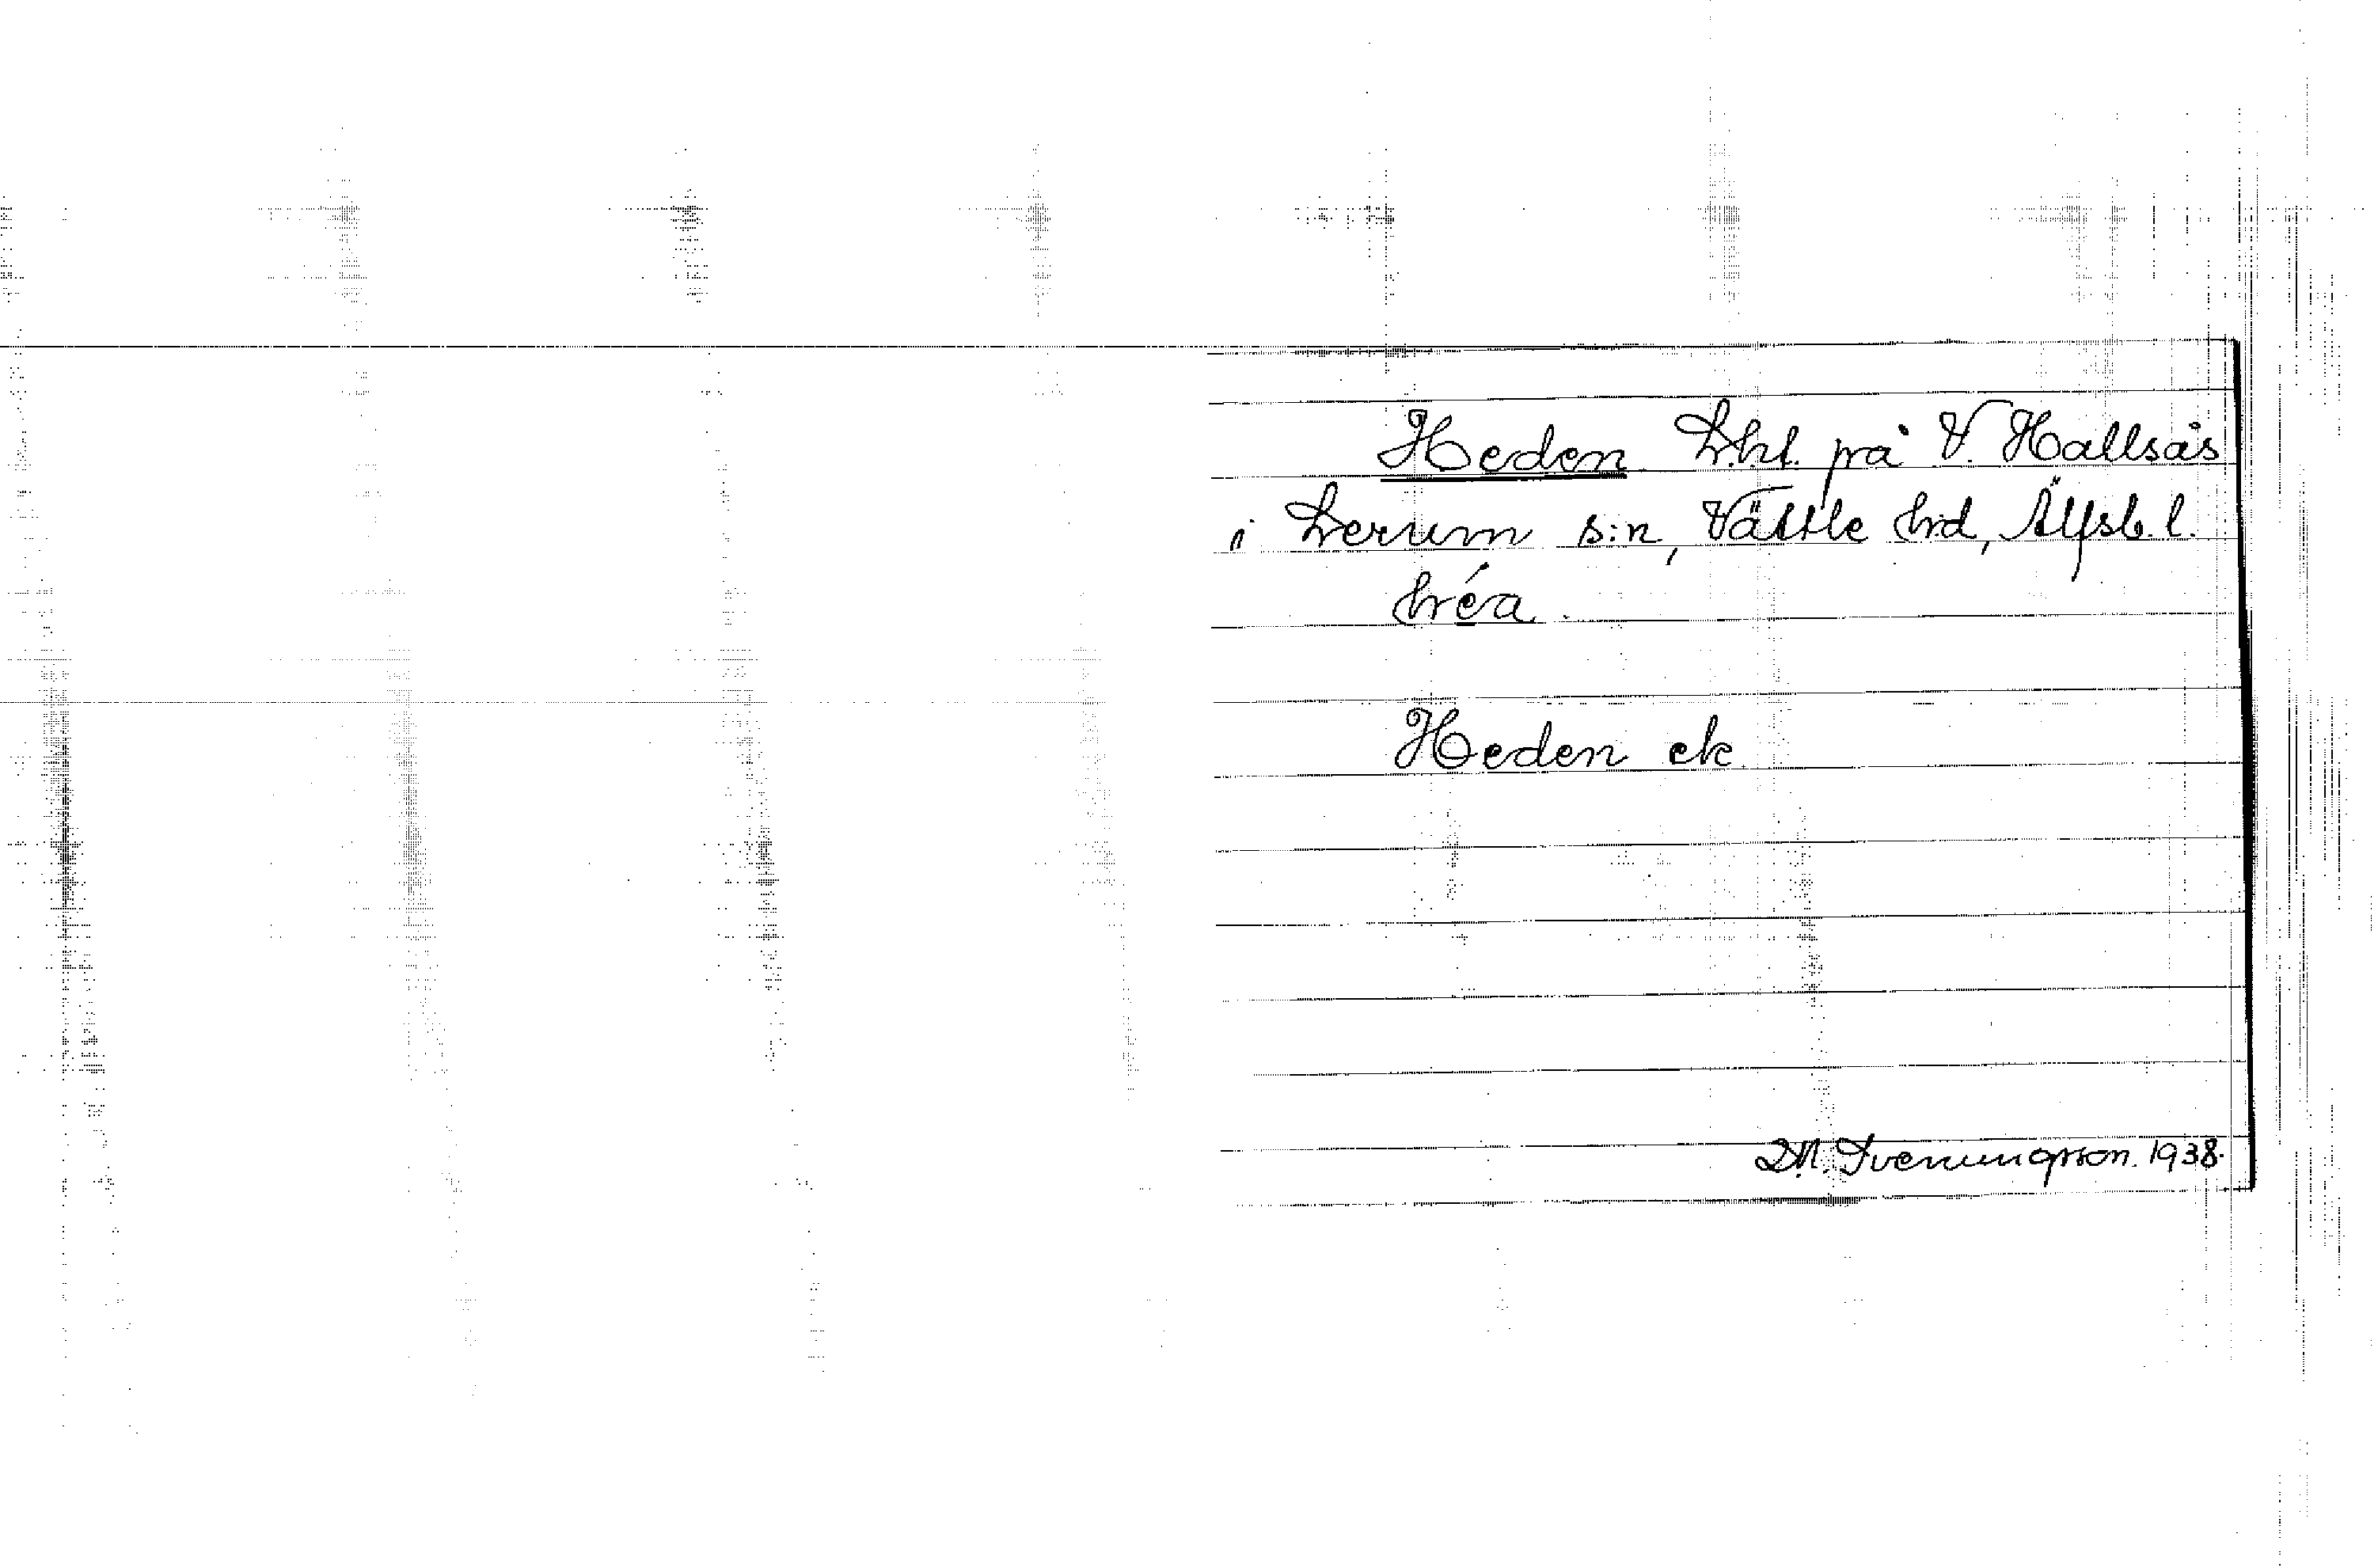 Heden L.ht. på V. Hallsås
i Lerum s:n, Vättle hd, Älfsb. l.
hé̱a.
Heden ek.
D.N. Svenungsson. 1938.